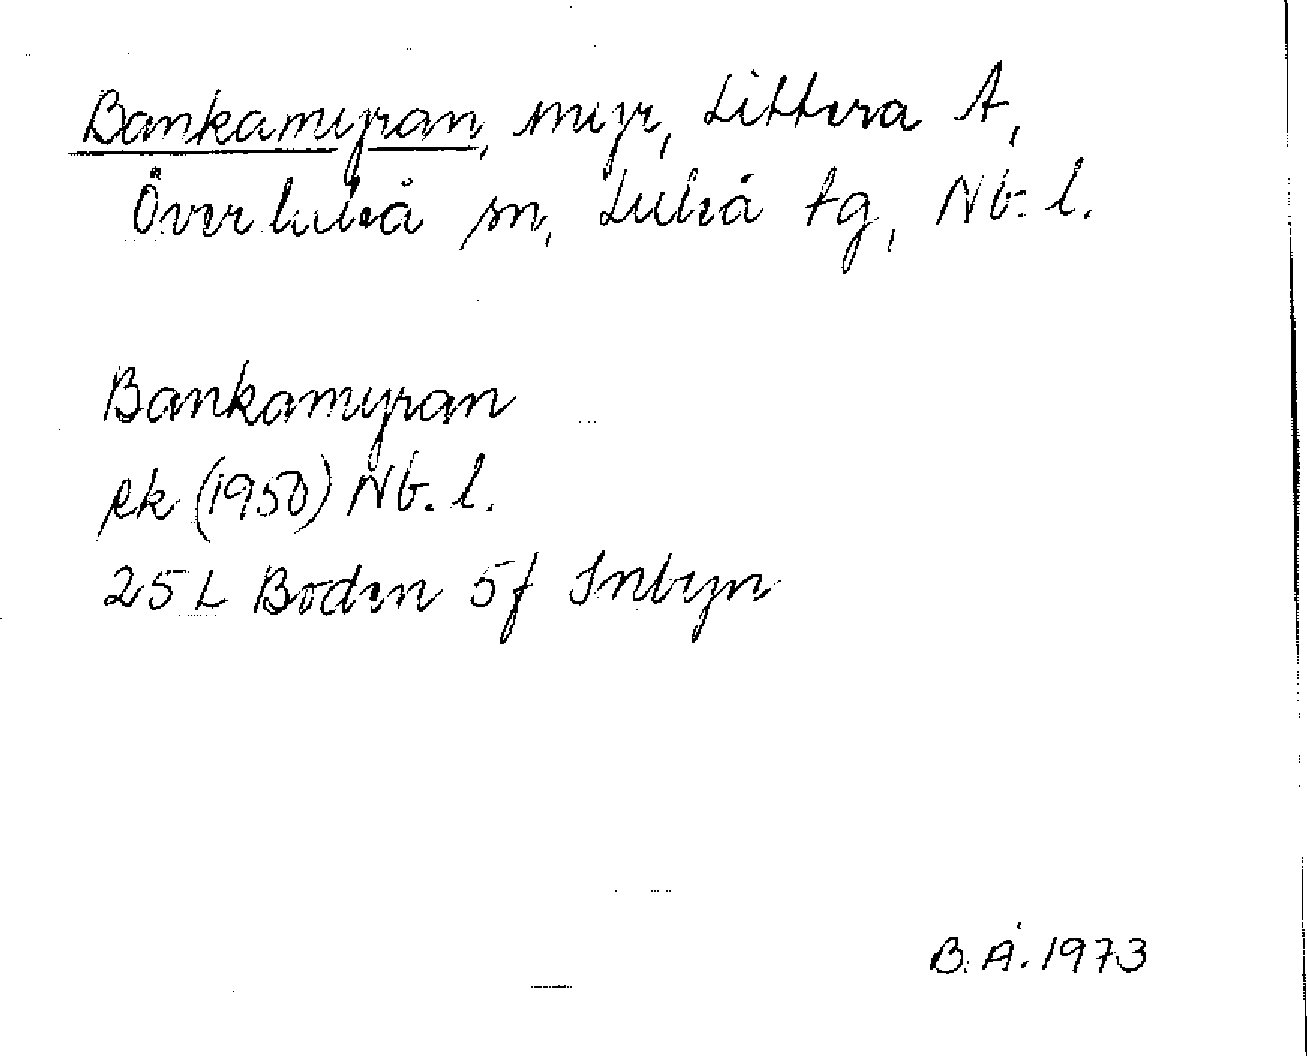 Bankamyran, myr, Littera A,
Överluleå sn, Luleå tg, Nb. l.
Bankamyran
rk (1950) Nb. l.
25 L Boden 5f Inbyn
B.Å. 1973